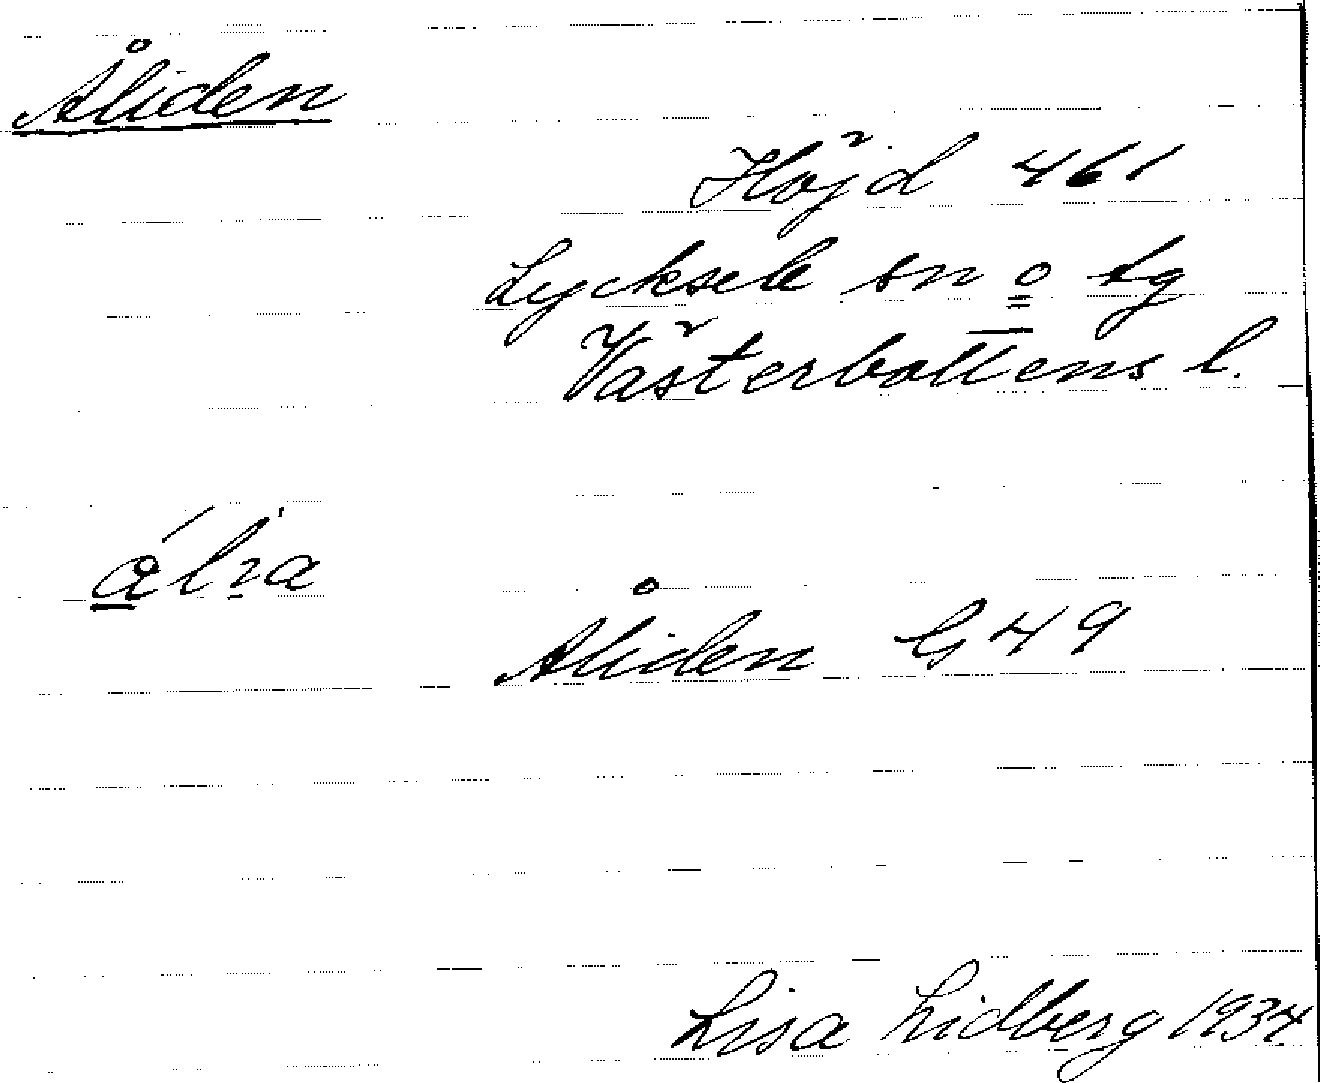 Åliden
Höjd 461
Lycksele sn o tg
Västerbottens l.
Åliden G 49
Lisa Lidberg 1934